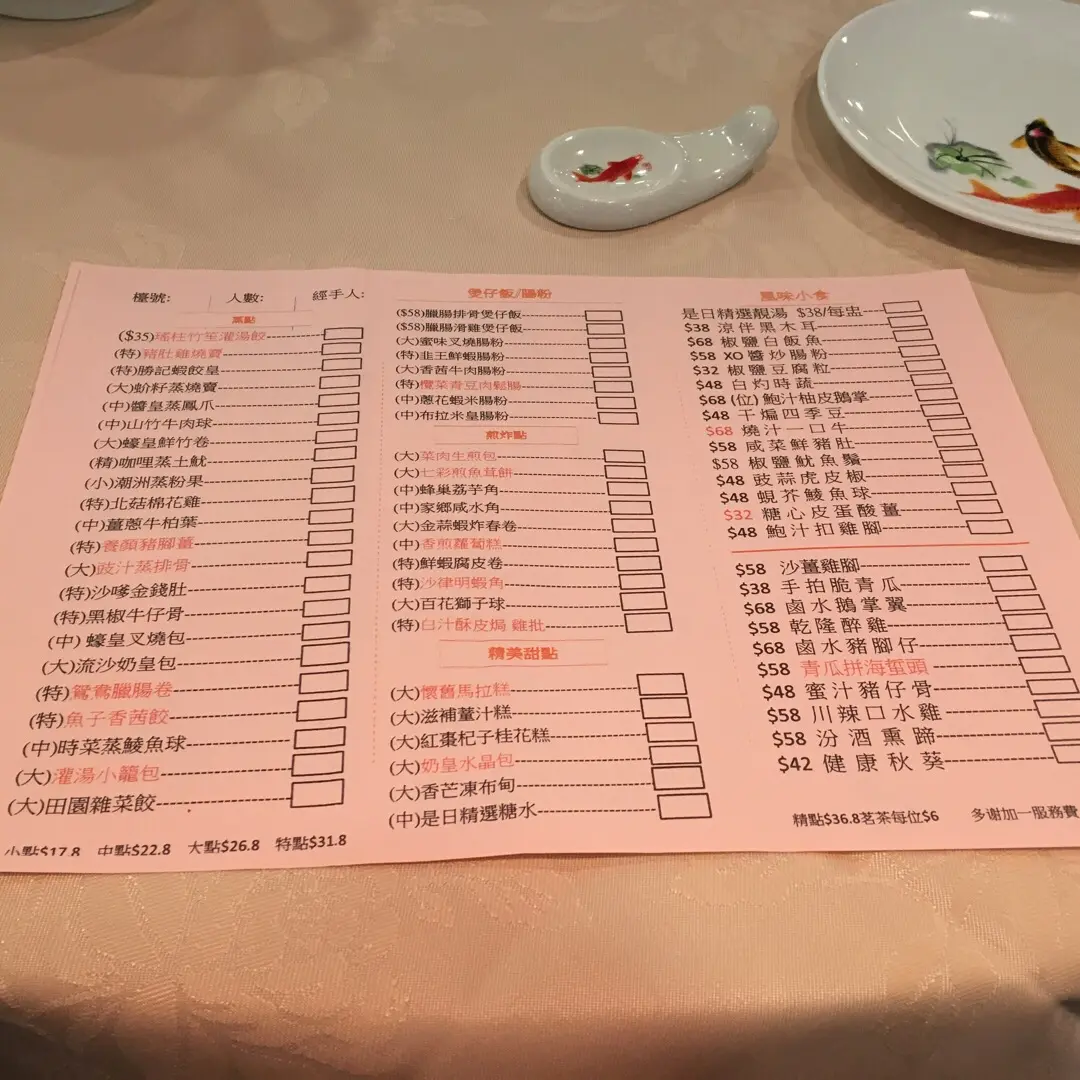 檯號: 人數: 經手人:
蒸點
($35)瑤柱竹笙灌湯餃
(特)豬肚雞燒賣
(特)勝記蝦餃皇
(大)蚧籽蒸燒賣
(中)醬皇蒸鳳爪
(中)山竹牛肉球
(大)蠔皇鮮竹卷
(精)咖哩蒸土魷
(小)潮洲蒸粉果
(特)北菇棉花雞
(中)薑蔥牛柏葉
(特)養顏豬腳薑
(大)豉汁蒸排骨
(特)沙嗲金錢肚
(特)黑椒牛仔骨
(中)蠔皇叉燒包
(大)流沙奶皇包
(特)鴛鴦臘腸卷
(特)魚子香茜餃
(中)時菜蒸鯪魚球
(大)灌湯小籠包
(大)田園雜菜餃
小點$17.8 中點$22.8 大點$26.8 特點$31.8
煲仔飯/腸粉
($58)臘腸排骨煲仔飯
($58)臘腸滑雞煲仔飯
(大)蜜味叉燒腸粉
(特)韭王鮮蝦腸粉
(大)香茜牛肉腸粉
(特)欖菜青豆肉鬆腸
(中)蔥花蝦米腸粉
(中)布拉米皇腸粉
煎炸點
(大)菜肉生煎包
(大)七彩煎魚茸餅
(中)蜂巢荔芋角
(中)家鄉咸水角
(大)金蒜蝦炸春卷
(中)香煎蘿蔔糕
(特)鮮蝦腐皮卷
(特)沙律明蝦角
(大)百花獅子球
(特)白汁酥皮焗 雞批
精美甜點
(大)懷舊馬拉糕
(大)滋補薑汁糕
(大)紅棗杞子桂花糕
(大)奶皇水晶包
(大)香芒凍布甸
(中)是日精選糖水
風味小食
是日精選靚湯 $38/每盅
$38 涼伴黑木耳
$68 椒鹽白飯魚
$58 XO醬炒腸粉
$32 椒鹽豆腐粒
$48 白灼時蔬
$68(位)鮑汁柚皮鵝掌
$48 干煸四季豆
$68 燒汁一口牛
$58 咸菜鮮豬肚
$58 椒鹽魷魚鬚
$48 豉蒜虎皮椒
$48 蜆芥鯪魚球
$32 糖心皮蛋酸薑
$48 鮑汁扣雞腳
$58 沙薑雞腳
$38 手拍脆青瓜
$68 鹵水鵝掌翼
$58 乾隆醉雞
$68 鹵水豬腳仔
$58 青瓜拼海蜇頭
$48 蜜汁豬仔骨
$58 川辣口水雞
$58 汾酒熏蹄
$42 健康秋葵
精點$36.8茗茶每位$6 多谢加一服務費